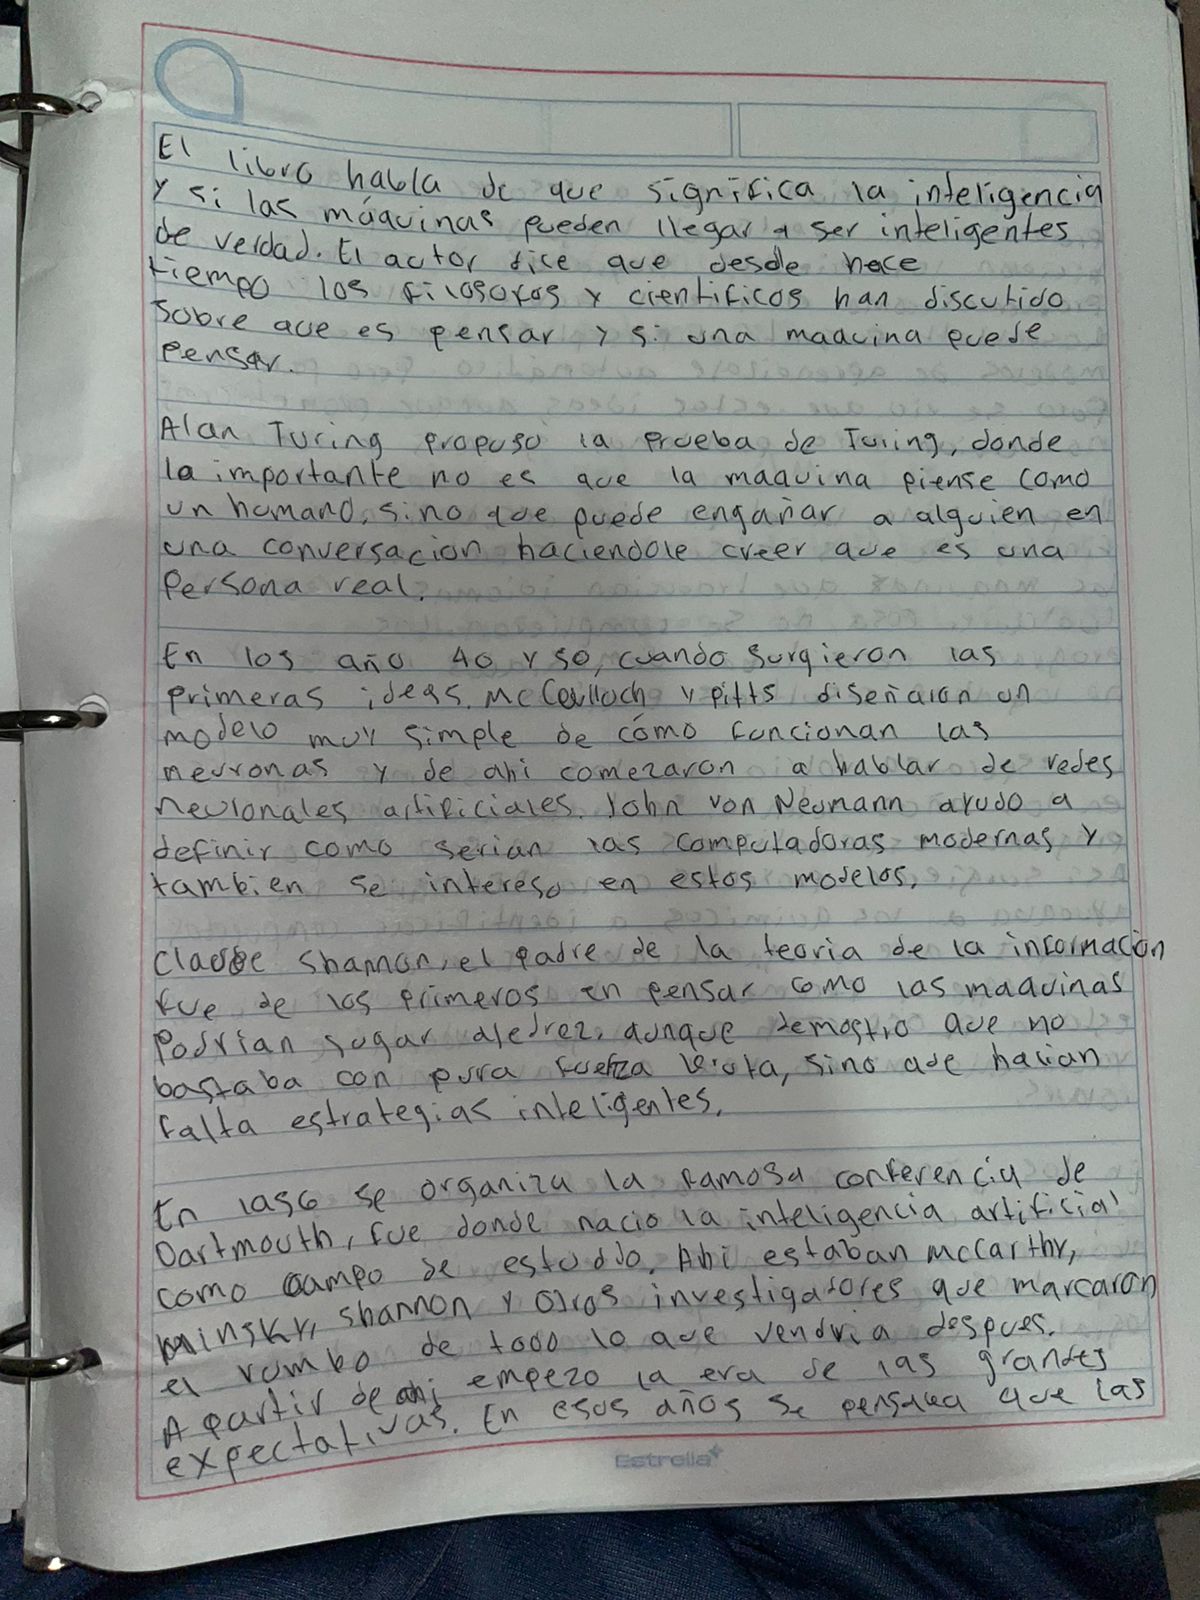 El libro habla de que significa la inteligencia
y si las máquinas pueden llegar a ser inteligentes
de verdad. El actor dice que desde hace
tiempo los filosofos y cientificos han discutido
sobre que es pensar y si una maquina puede
pensar.
Alan Turing propuso la prueba de Turing, donde
la importante no es que la maquina piense como
un humano, sino que puede engañar a alguien en
una conversacion haciendole creer que es una
persona real.
En los año 40 y 50, cuando surgieron las
primeras ideas. McCoulloch y Pitts diseñaron un
modelo muy simple de cómo funcionan las
neuronas y de ahi comezaron a hablar de redes
neuronales artificiales. John von Neumann ayudo a
definir como serian las computadoras modernas y
tambien se intereso en estos modelos.
Claude Shannon, el padre de la teoria de la información
fue de los primeros en pensar como las maquinas
podrian jugar ajedrez, aunque demostro que no
bastaba con pura fuerza bruta, sino que hacian
falta estrategias inteligentes.
En 1956 se organiza la famosa conferencia de
Dartmouth, fue donde nacio la inteligencia artificial
como campo de estudio. Ahi estaban McCarthy,
Minsky, Shannon y otros investigadores que marcaron
el rumbo de todo lo que vendria despues.
A partir de ahi empezo la era de las grandes
expectativas. En esos años se pensaba que las
Estrella